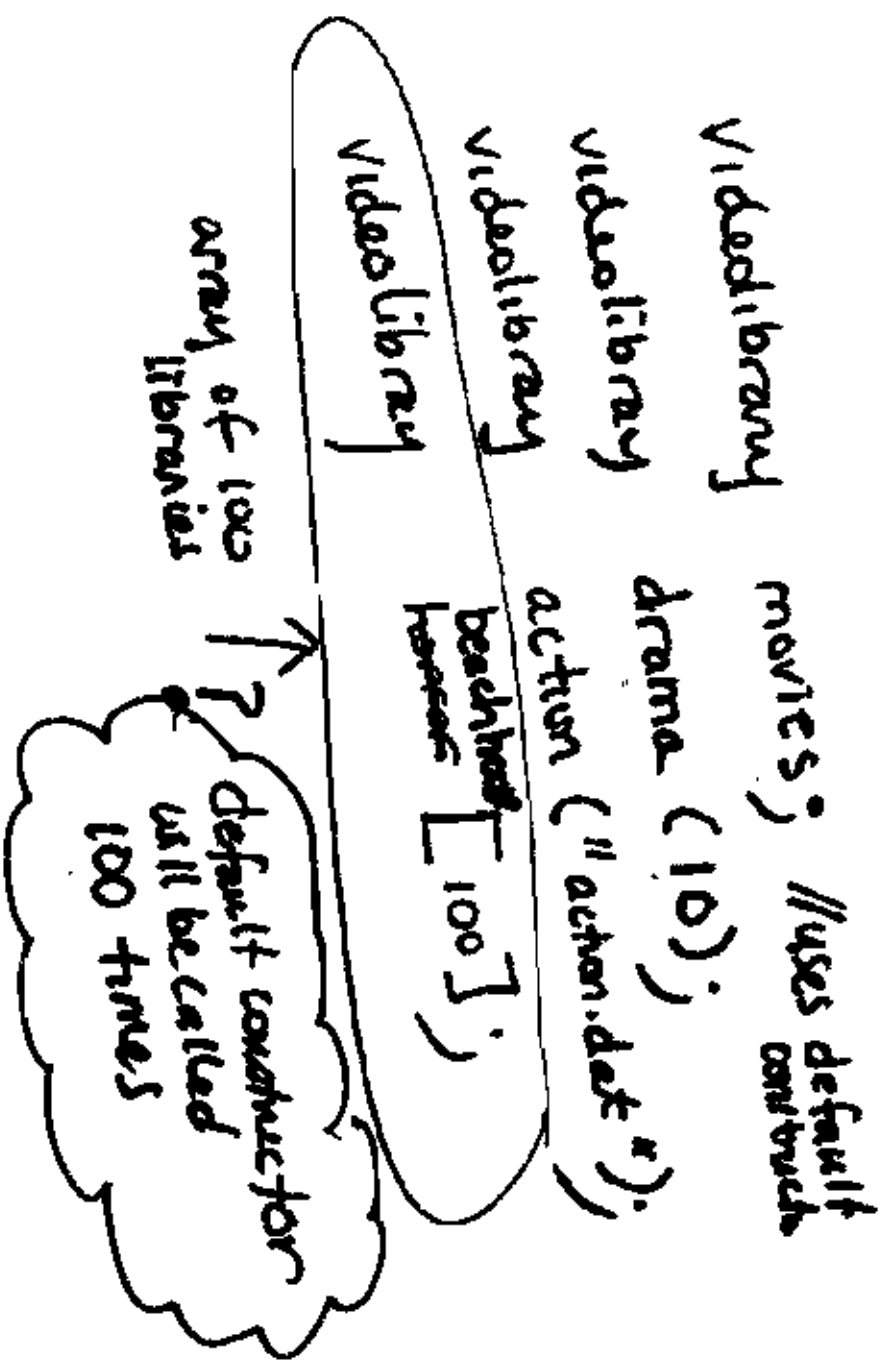 videolibrary movies; //uses default
videolibrary drama (10);
videolibrary action ("action.dat");
videolibrary [100];
array of 100
libraries
?
default constructor
will be called
100 times